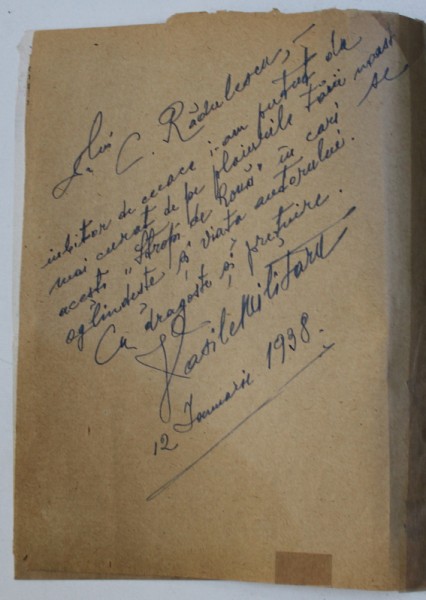 Lui
C. Rădulescu, –
iubitor de ceeace i-am putut da
mai curat de pe plaiurile Țării noastre
acești „Stropi de Rouă” în cari se
oglindește și viața autorului.
Cu dragoste și prețuire.
Vasile Militaru
12 Ianuarie 1938.